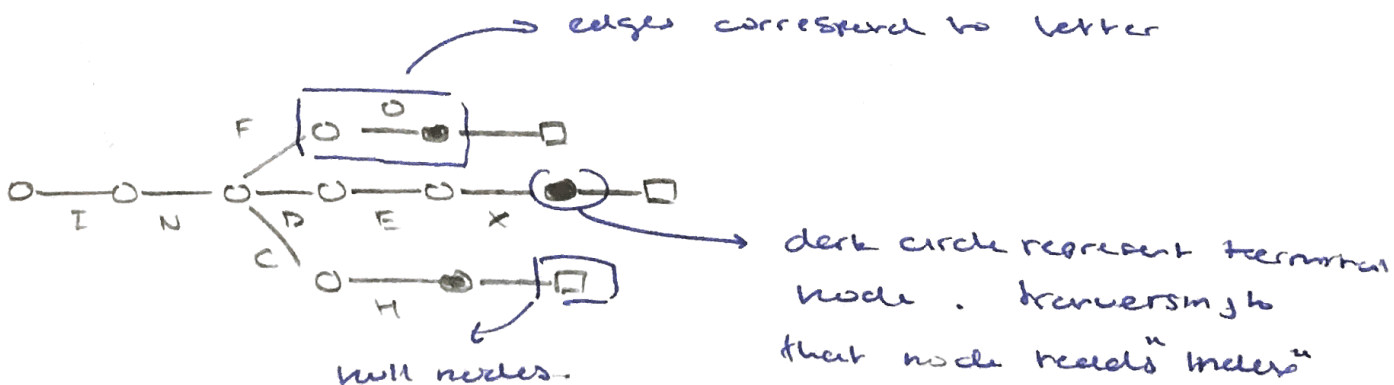 edges correspond to letter
O
F
I N D E X
C
H
dark circle represent terminal
node. traversing to
that node reads "index"
null nodes.